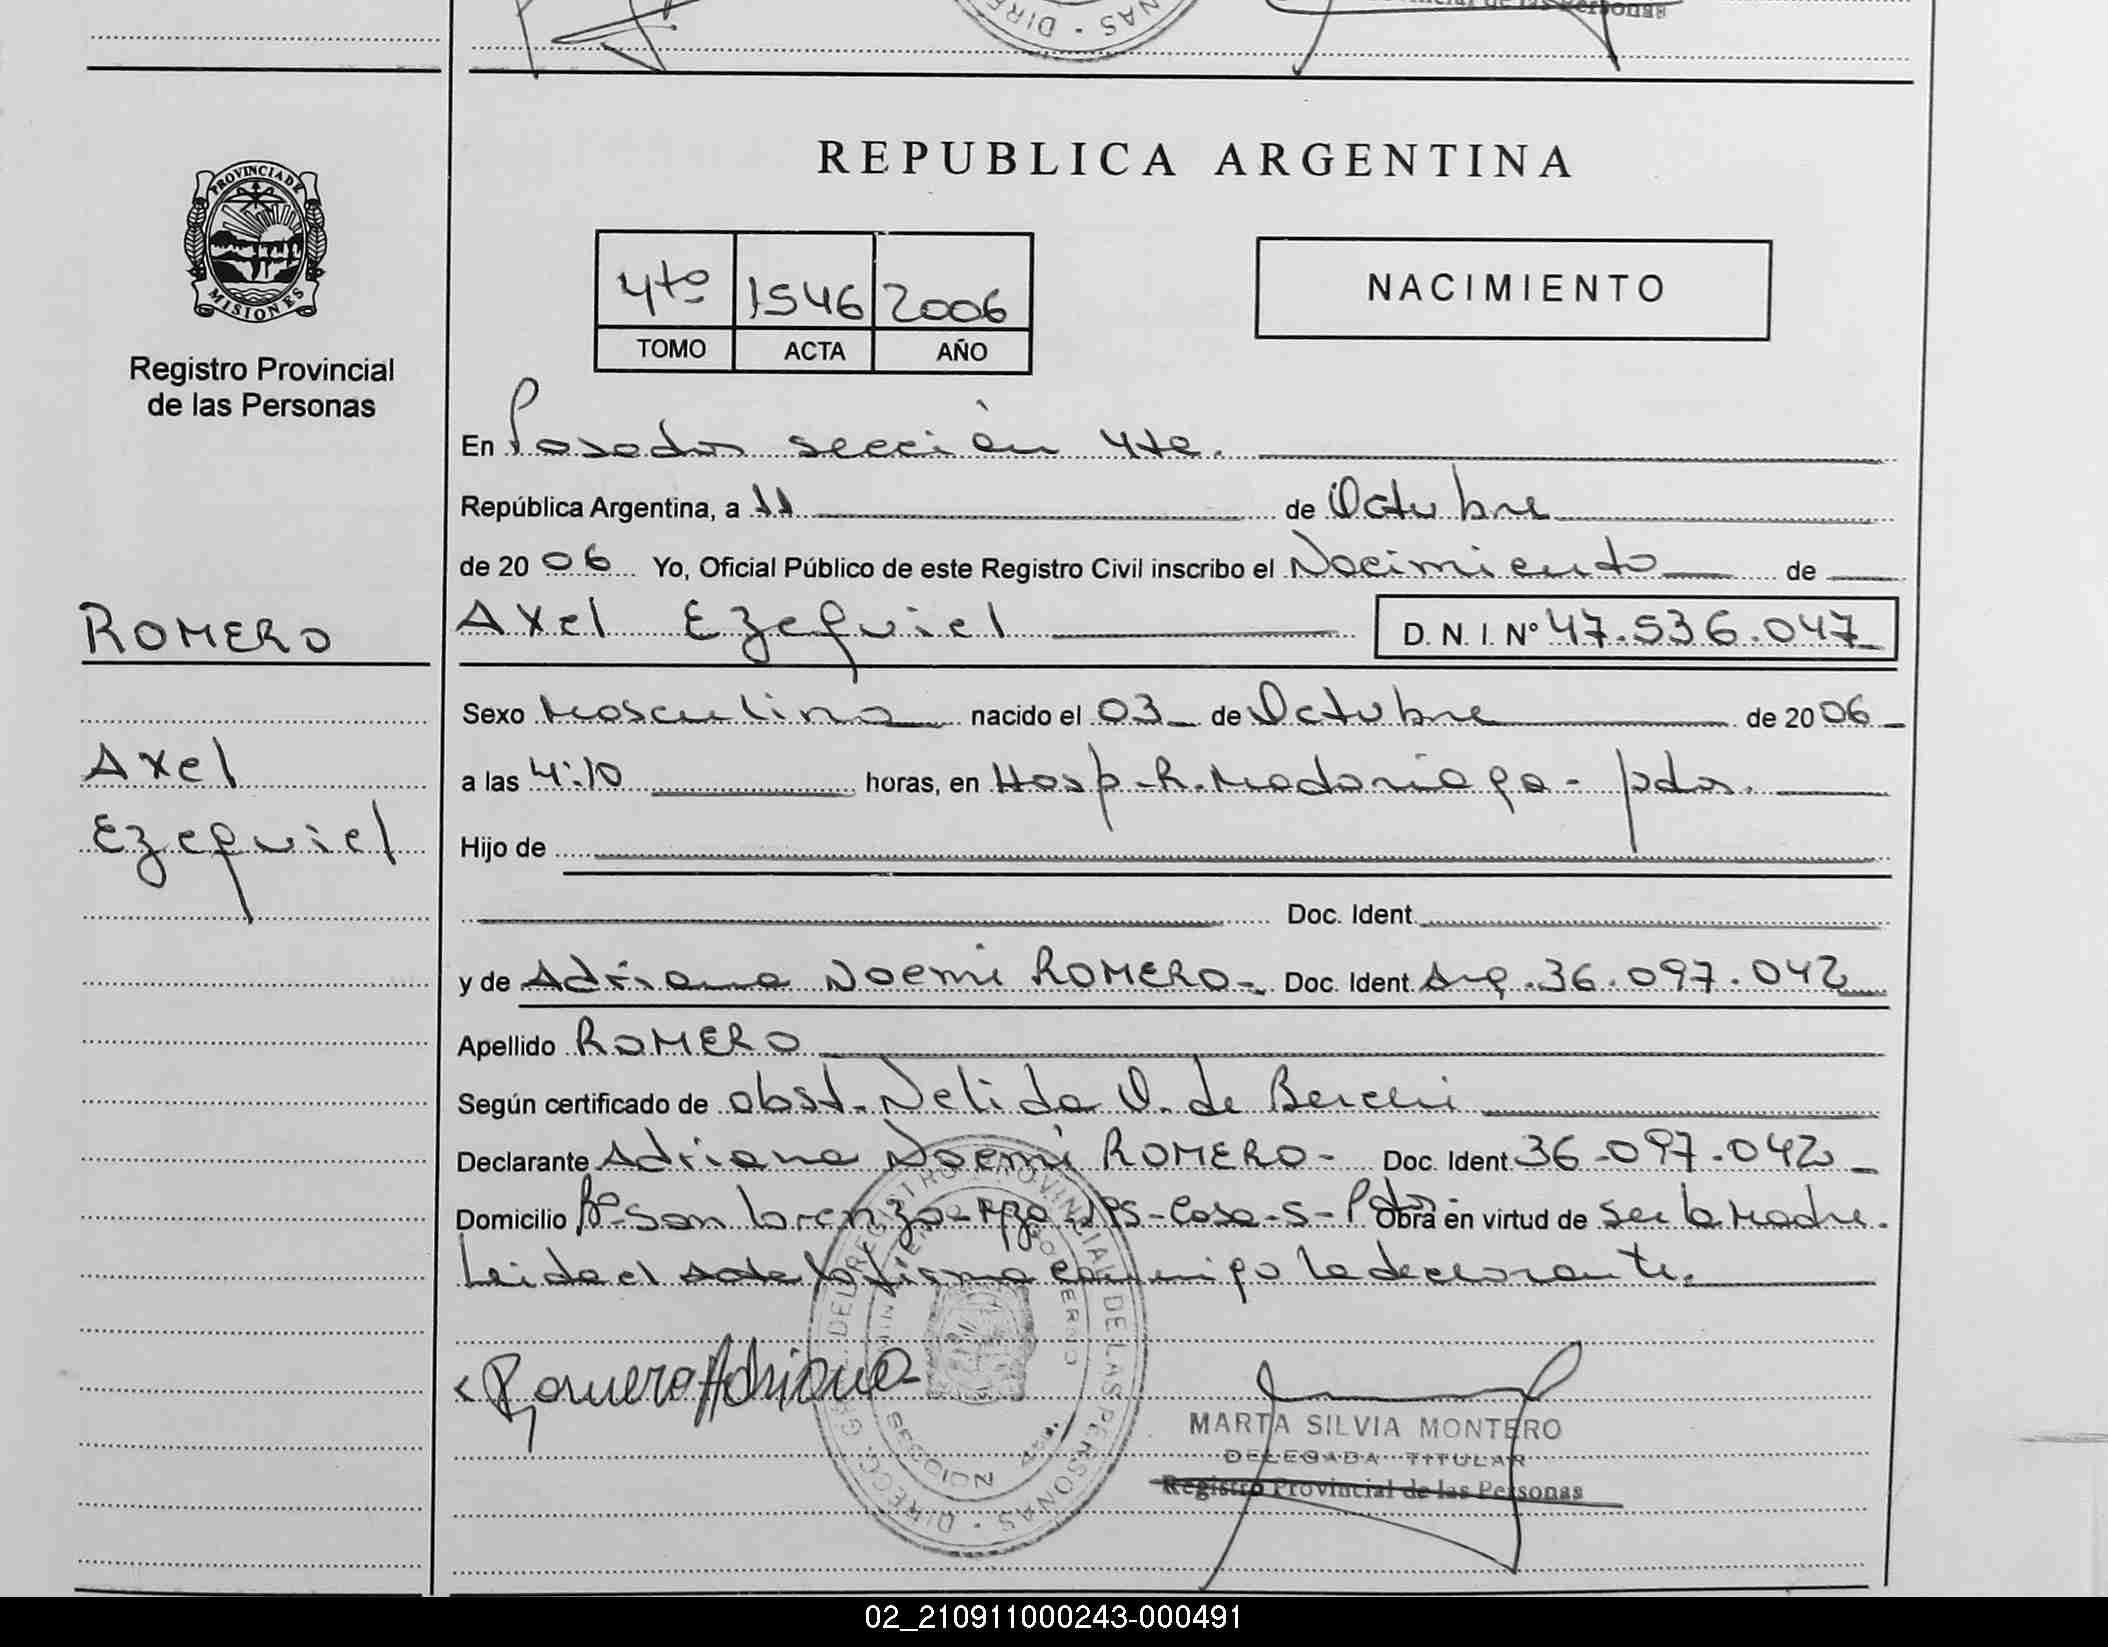 Provincial de las Personas
REPUBLICA ARGENTINA
PROVINCIA DE
MISIONES
Registro Provincial
de las Personas
4to 1546 2006
TOMO ACTA AÑO
NACIMIENTO
En Posadas sección 4ta.
República Argentina, a 11 de Octubre
de 20 06 Yo, Oficial Público de este Registro Civil inscribo el Nacimiento de
ROMERO
Axel Ezequiel D. N. I. Nº 47.536.047
Sexo Masculino nacido el 03 de Octubre de 20 06
Axel
a las 4:10 horas, en Hosp. R. Madariaga - pdas.
Ezequiel
Hijo de
Doc. Ident.
y de Adriana Noemi ROMERO- Doc. Ident Arg. 36.097.042
Apellido ROMERO
Según certificado de obst. Nelida O. de
Declarante Adriana Noemí ROMERO- Doc. Ident 36.097.042
Domicilio Bº San Lorenzo - Casa-5- Pdas Obra en virtud de ser la Madre.
Leida el acta la firma conmigo la declarante.
Romero Adriana
DIRECC. GRAL. DEL REGISTRO PROVINCIAL DE LAS PERSONAS
SECCION 4ta.
MARTA SILVIA MONTERO
DELEGADA TITULAR
Registro Provincial de las Personas
02_210911000243-000491